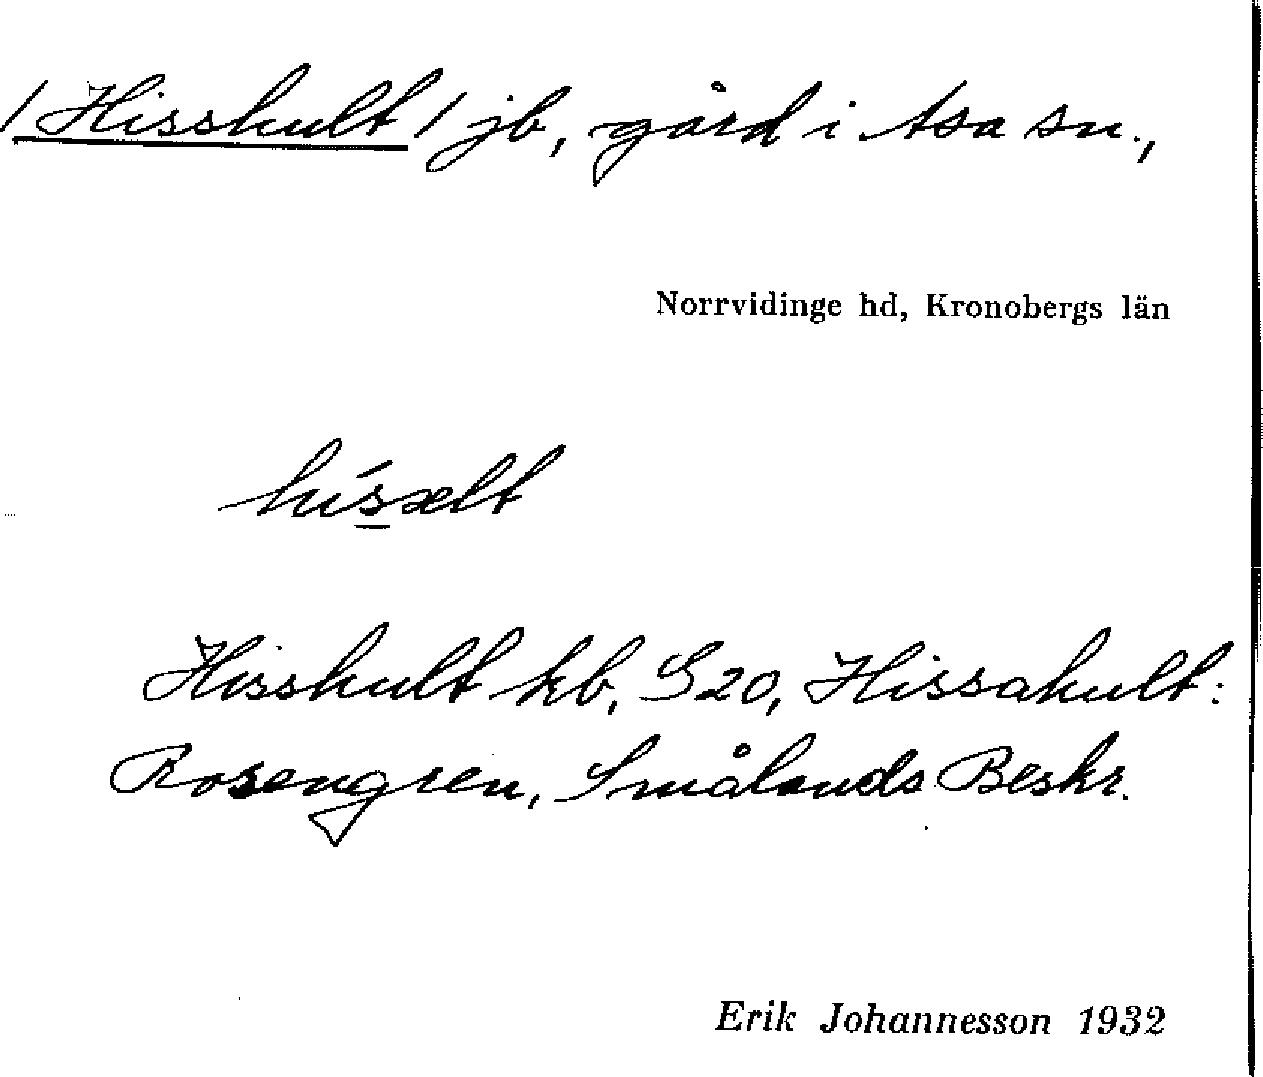 /Hisshult/ jb, gård i Asa sn.,
Norrvidinge hd, Kronobergs län
hísælt
Hisshult kb, S20, Hissahult:
Rosengren, Smålands Beskr.
Erik Johannesson 1932